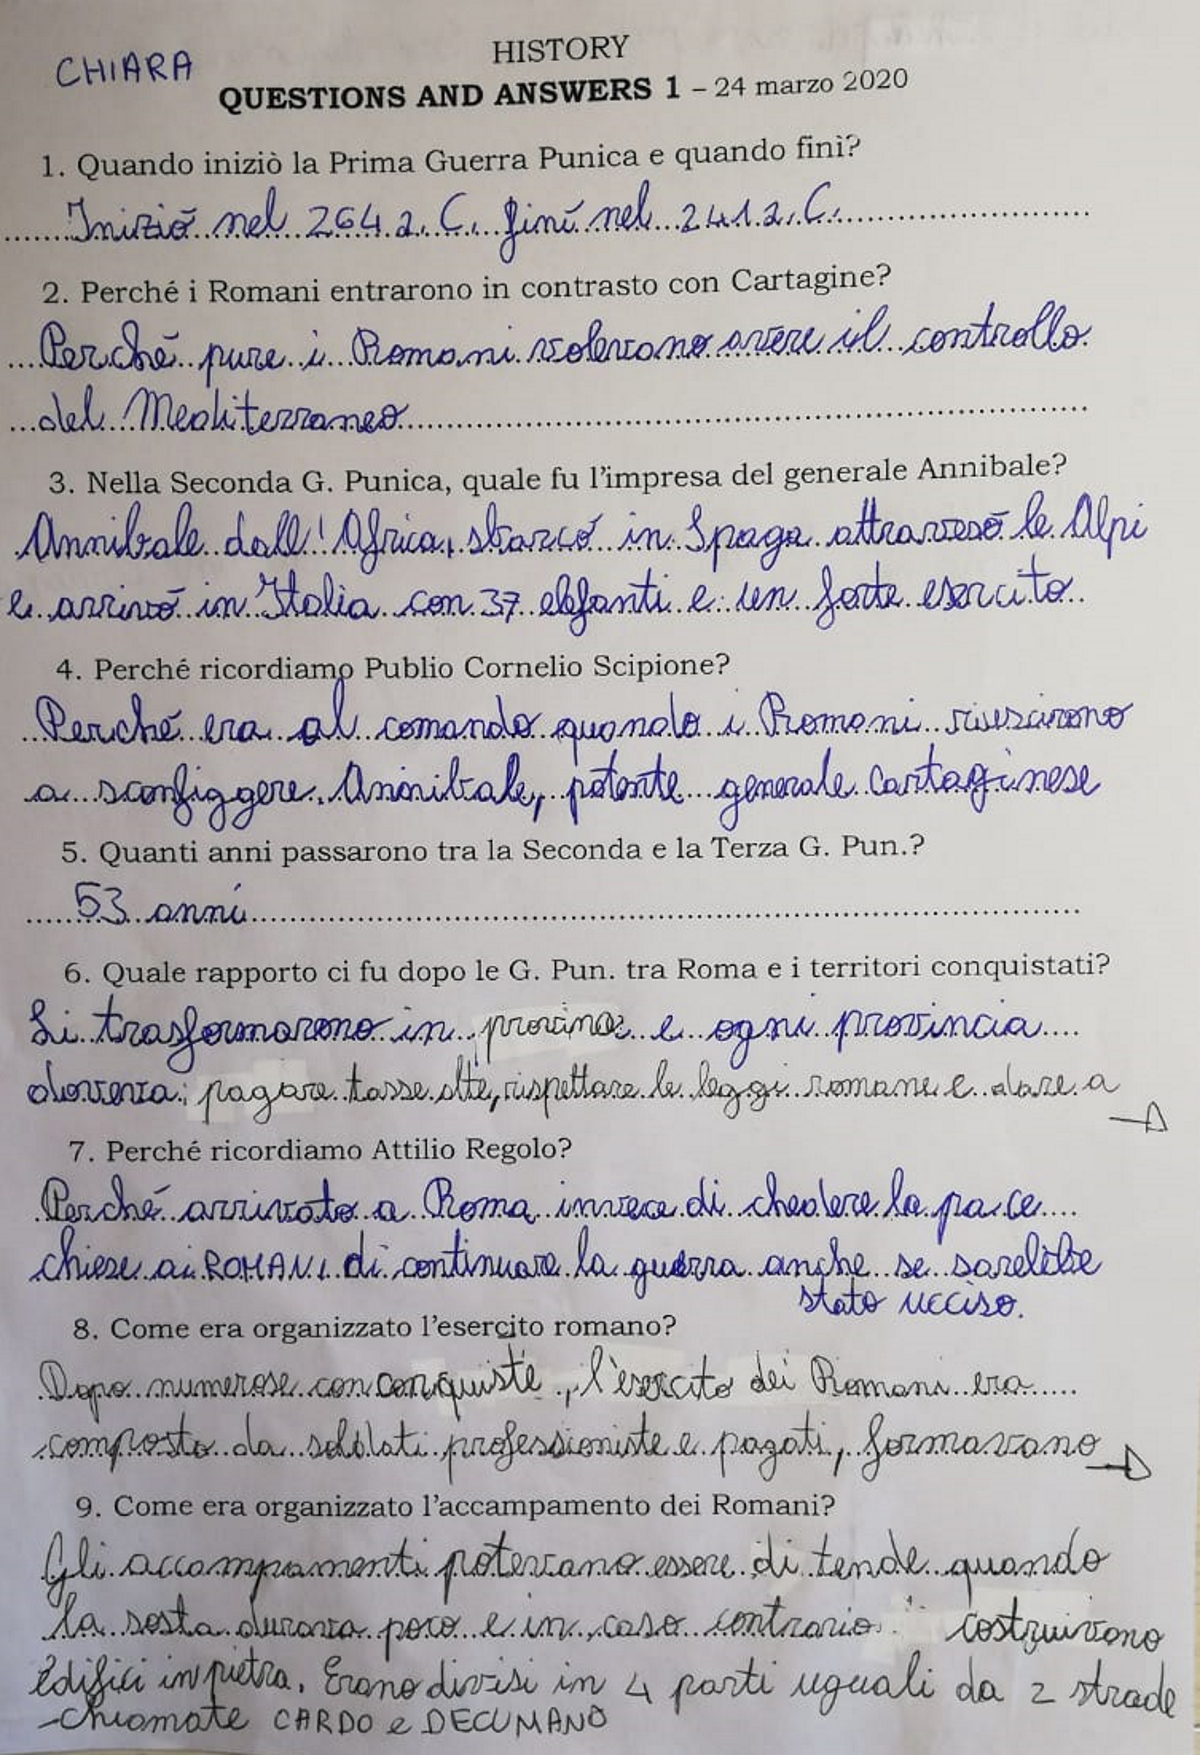 CHIARA
HISTORY
QUESTIONS AND ANSWERS 1 – 24 marzo 2020
1. Quando iniziò la Prima Guerra Punica e quando finì?
Iniziò nel 264 a. C. finì nel 241 a. C.
2. Perché i Romani entrarono in contrasto con Cartagine?
Perché pure i Romani volevano avere il controllo
del Mediterraneo
3. Nella Seconda G. Punica, quale fu l'impresa del generale Annibale?
Annibale dall'Africa, sbarcó in Spaga attraversò le Alpi
e arrivó in Italia con 37 elefanti e un forte esercito.
4. Perché ricordiamo Publio Cornelio Scipione?
Perché era al comando quando i Romani riuscirono
a sconfiggere Annibale, potente generale cartaginese
5. Quanti anni passarono tra la Seconda e la Terza G. Pun.?
53 anni
6. Quale rapporto ci fu dopo le G. Pun. tra Roma e i territori conquistati?
Li trasformarono in e ogni provincia
doveva: pagare tasse alte, rispettare le leggi romane e dare a →
7. Perché ricordiamo Attilio Regolo?
Perché arrivato a Roma invece di chedere la pace
chiese ai ROMANI di continuare la guerra anche se sarebbe
stato ucciso.
8. Come era organizzato l'esercito romano?
Dopo numerose con conquiste, l'esercito dei Romani era
composto da soldati professioniste e pagati, formavano →
9. Come era organizzato l'accampamento dei Romani?
Gli accompamenti potevano essere di tende quando
la sosta durava poco e in caso contrario costruivano
edifici in pietra. Erano divisi in 4 parti uguali da 2 strade
chiamate CARDO e DECUMANO